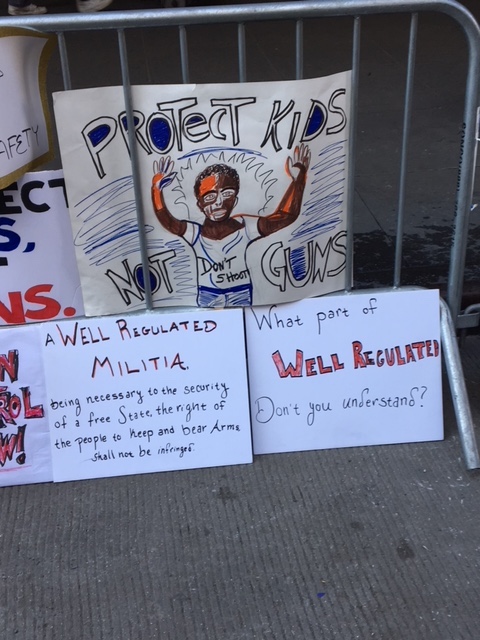 AFETY
PROTECT KIDS
DON'T
SHOOT
NOT GUNS
ECT
S,
NS.
N
ROL
W!
A WELL REGULATED
MILITIA,
being necessary to the security
of a free State, the right of
the people to keep and bear Arms
shall not be infringed.
What part of
WELL REGULATED
Don't you understand?